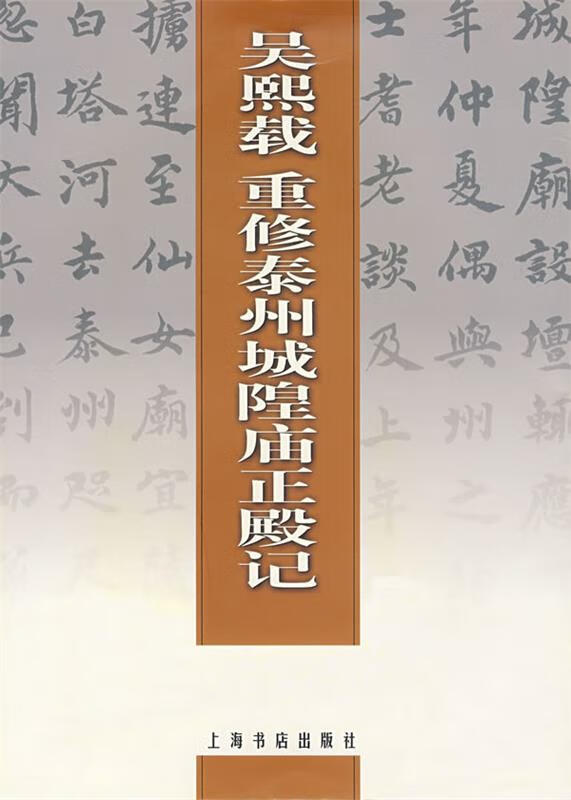 城隍廟設壇輒應
年仲夏偶與州之
士耆老談及上年
吴熙载 重修泰州城隍庙正殿记
擄連至仙女廟宜
白塔河去泰州咫尺
忽聞大兵已到而
上海书店出版社